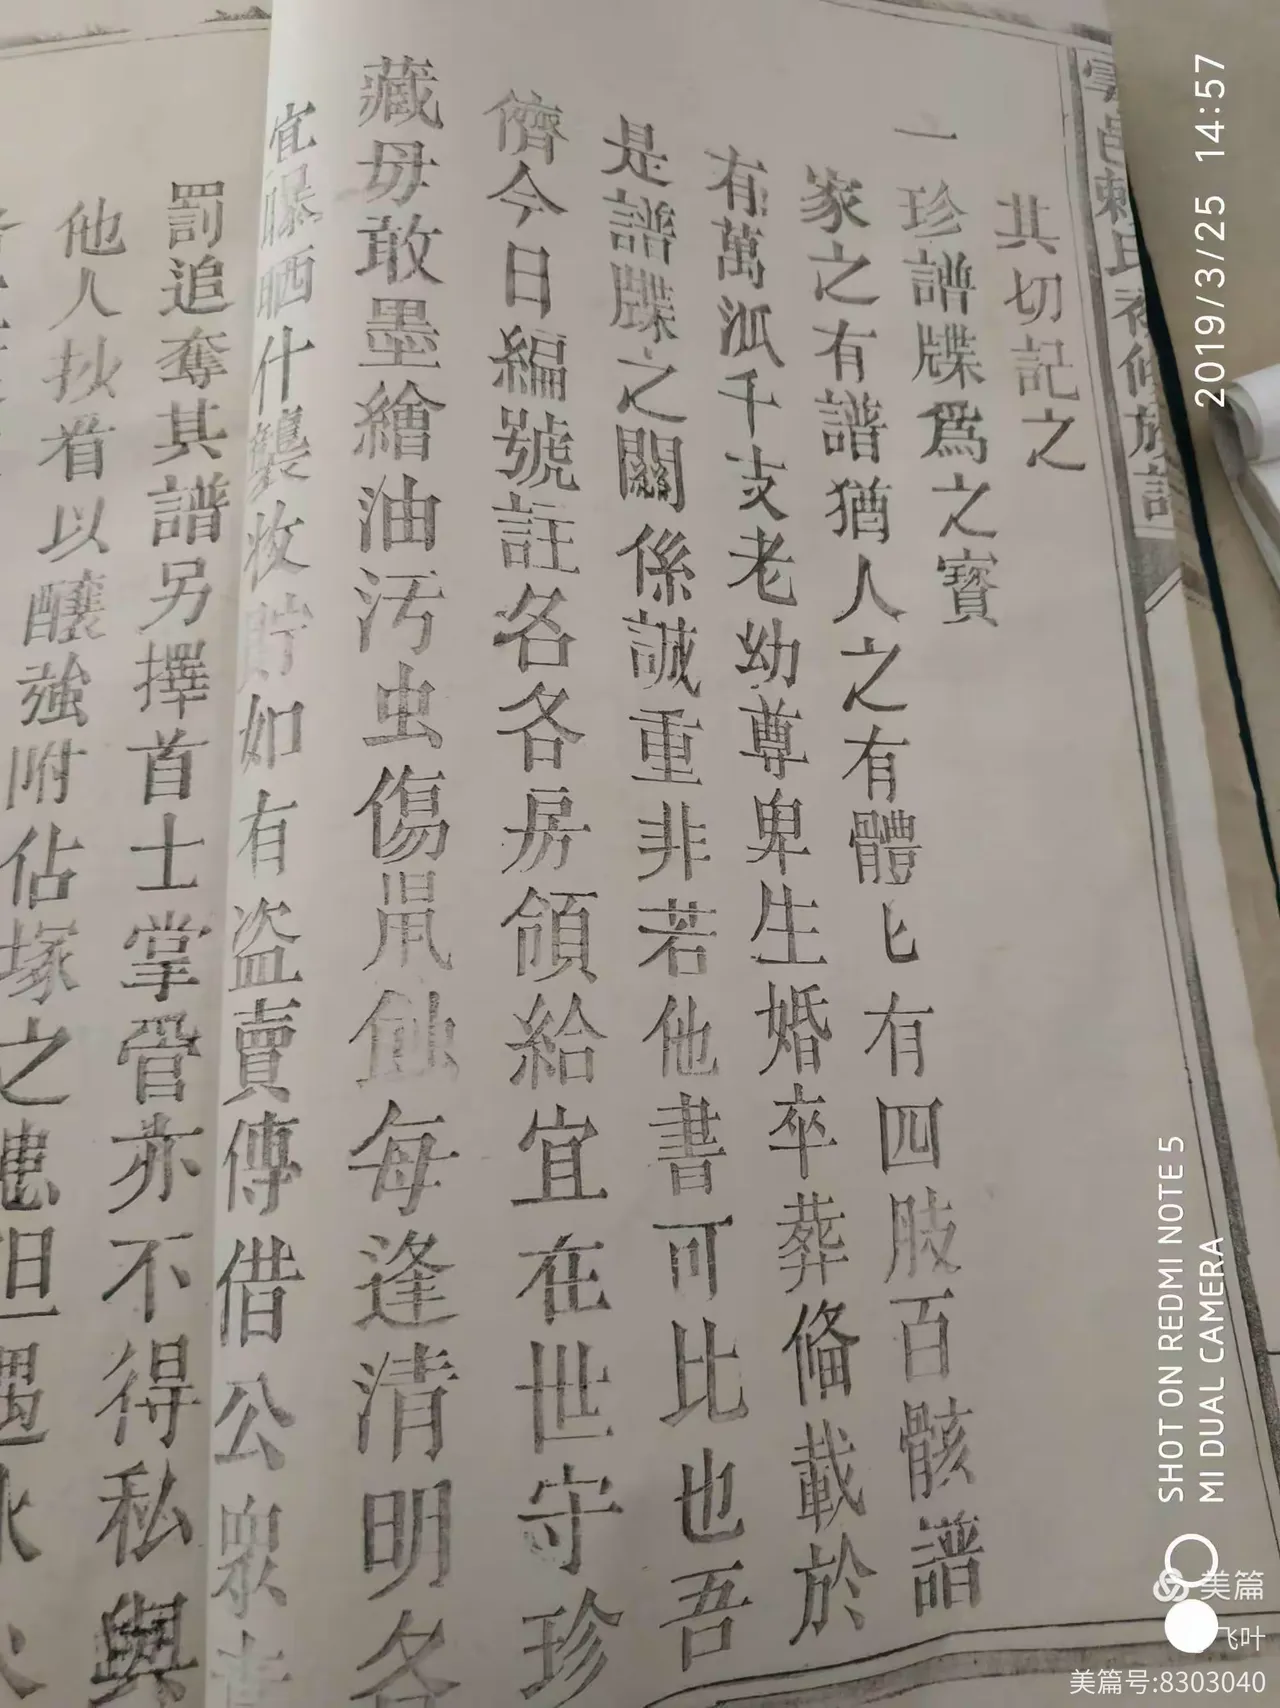 其切記之
一珍譜牒為之寶
家之有譜猶人之有體匕有四肢百骸譜
有萬派千支老幼尊卑生婚卒葬俻載於
是譜牒之關係誠重非若他書可比也吾
儕今日編號註名各房領給宜在世守珍
藏毋敢墨繪油汚虫傷鼡蝕每逢清明各
宜曝晒什襲收貯如有盜賣傳借公眾責
罰追奪其譜另擇首士掌管亦不得私與
他人抄看以釀強附佔塚之
氏初修族譜
2019/3/25 14:57
SHOT ON REDMI NOTE 5
MI DUAL CAMERA
美篇
飞叶
美篇号:8303040